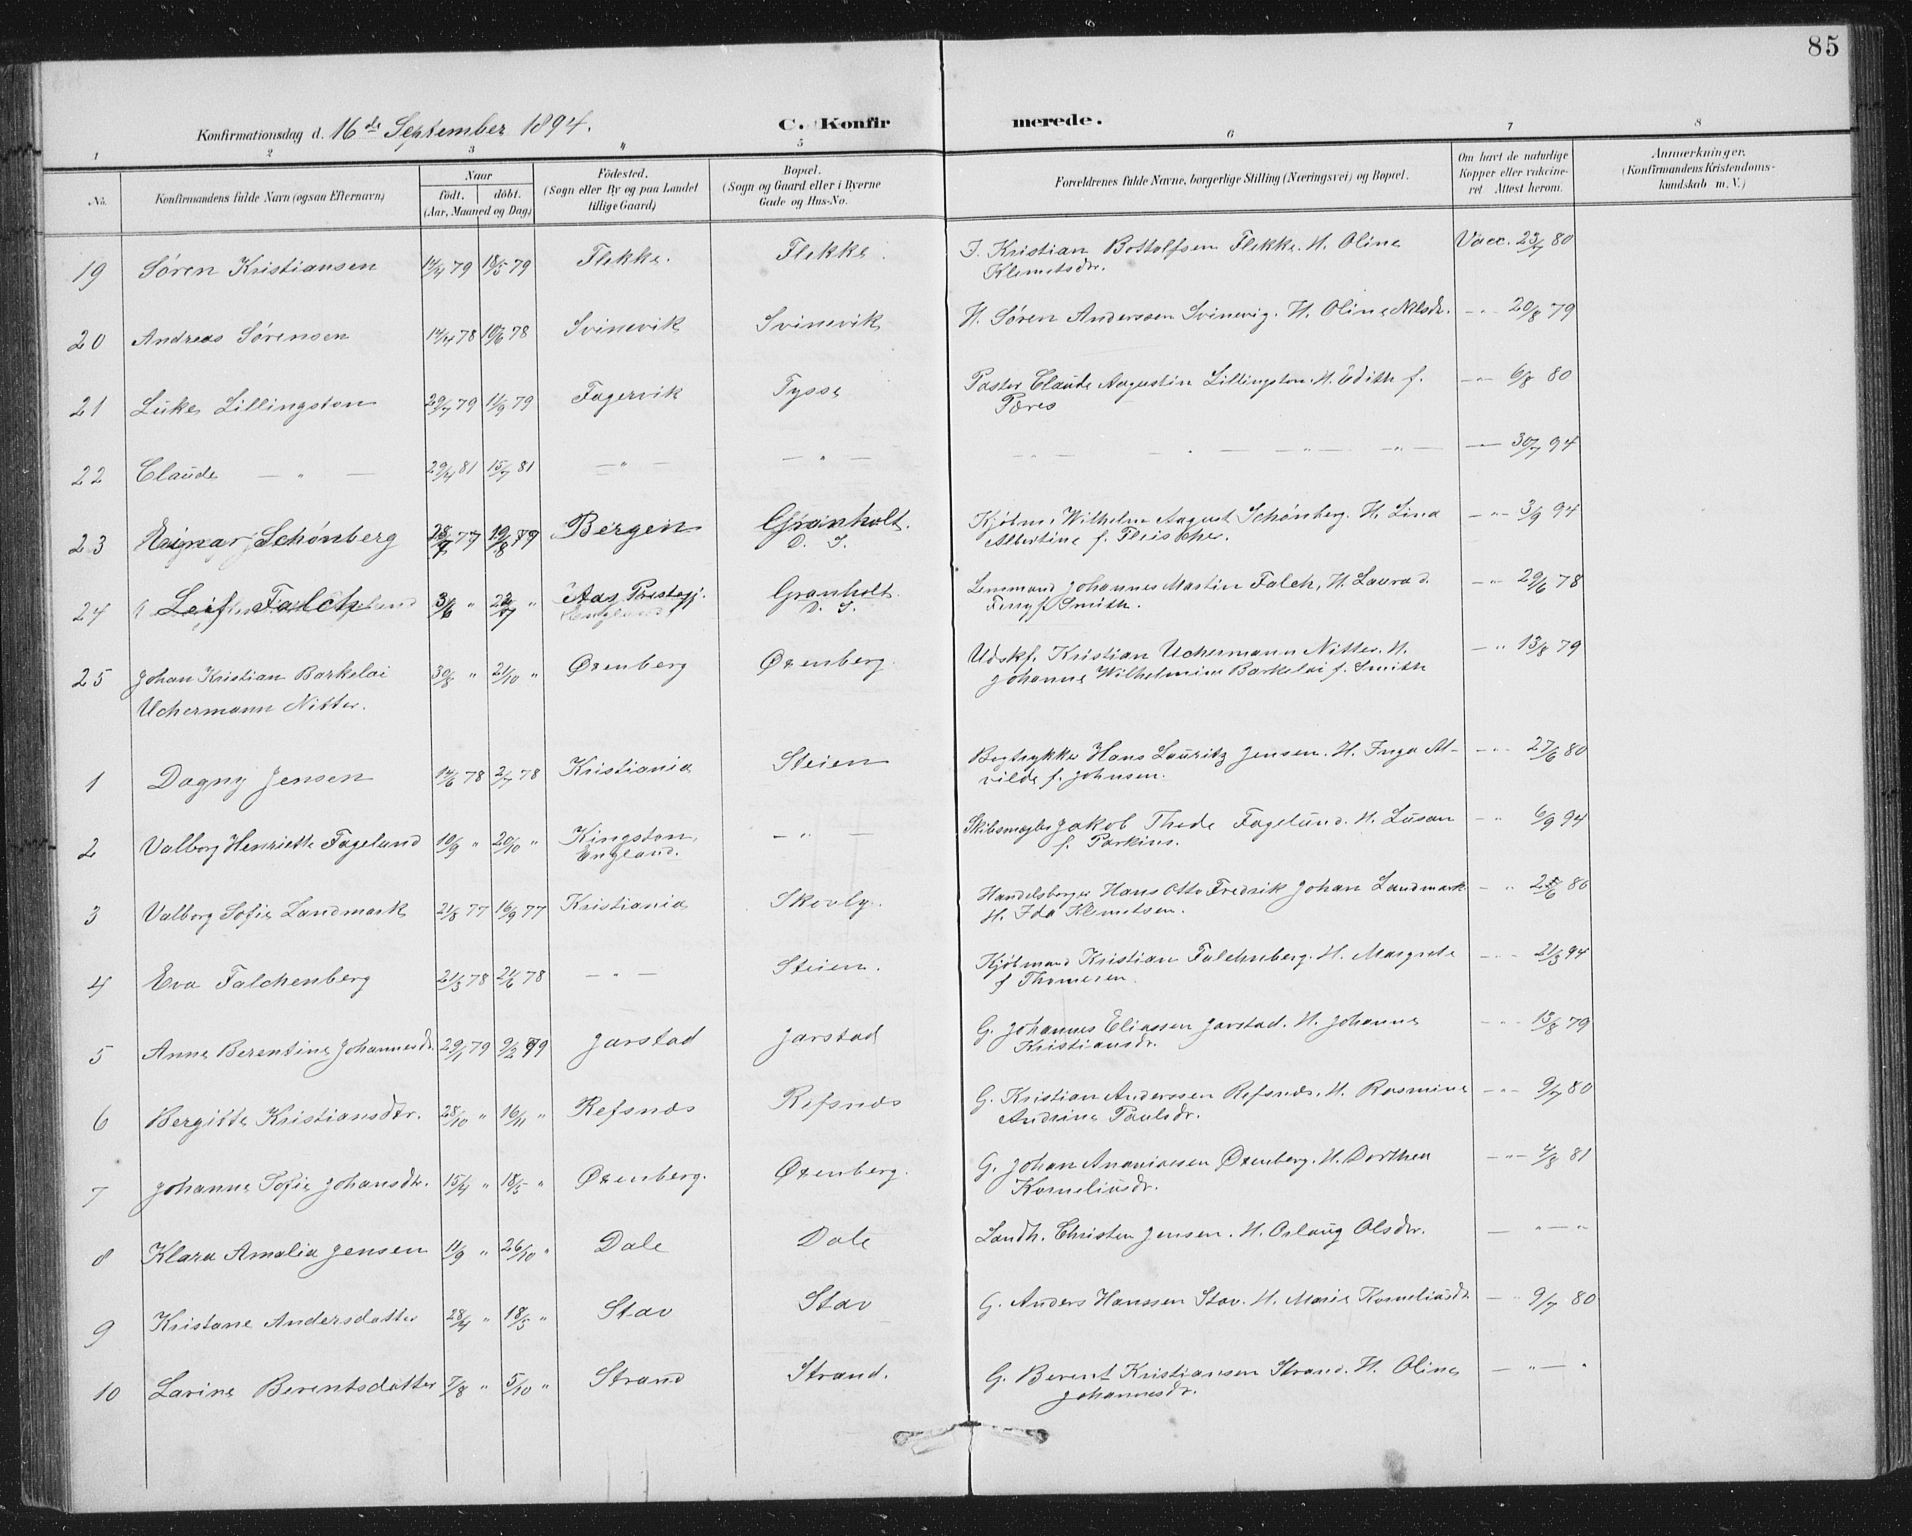 85
Konfirmationsdag d. 16de September 1894. C. Konfirmerede.
1 2 3 4 5 6 7 8
No. Konfirmandens fulde Navn (ogsaa Efternavn) Naar født. døbt. (Aar, Maaned og Dag) Fødested. (Sogn eller By og paa Landet tillige Gaard) Bopæl. (Sogn og Gaard eller i Byerne Gade og Hus-No. Forældrenes fulde Navne, borgerlige Stilling (Næringsvei) og Bopæl. Om havt de naturlige Kopper eller vakcineret Attest herom. Anmerkninger. (Konfirmandens Kristendomskundskab m. V.)
19 Søren Kristiansen 14/4 79 18/5 79 Flekke. Flekke. I. Kristian Bottolfsen Flekke. H. Oline Vacc. 23/7 80
Klemetsdr.
20 Andreas Sørensen 14/4 78 10/6 78 Svinevik Svinevik H. Søren Anderssen Svinevig. H. Oline Nilsdr. - " - 20/8 79
21 Luke Lillingston 29/7 79 11/9 79 Fagervik Tysse Pastor Claude Augustin Lillingston. H. Edith f. - " - 6/8 80
Pares
22 Claude — " — 29/4 81 15/7 81 — " — — " — — " — 30/7 94
23 Schønberg 28/7 77 19/8 89 Bergen Granholt. Kjøbm. Wilhelm August Schønberg. H. Lina - " - 3/9 94
D. S. Albertine f. Fleischer.
24 Leif Falch 3/6 " 22/7 " Aas Prestegj. Granholt. Lensmand Johannes Martin Falch, H. Laura d. - " - 29/6 78
England D. S. f. Smith.
25 Johan Kristian Barkelai 30/8 " 21/10 " Øxenberg Øxenberg. Udskf. Kristian Uchermann Nitter. H. - " 13/8 79
Uchermann Nitter. Johanne Wilhelmine Barkelai f. Smith
1 Dagny Jensen 17/6 78 2/7 78 Kristiania Steien Bogtrykker Hans Lauritz Jensen. H. Inga Al- - " - 27/6 80
vilde f. Johnsen.
2 Valborg Henriette Fagelund 10/9 " 20/10 " Kingston, — " — Skibsmægler Jakob Thode Fagelund. H. Susan - " 6/9 94
England. f. Parkins.
3 Valborg Sofie Landmark 21/8 77 16/9 77 Kristiania Skovly. Handelsborger Hans Otto Fredrik Johan Landmark - " 25/6 86
H. Ida Klemetsen.
4 Eva Falchenberg 21/3 78 21/6 78 — " — Steien. Kjøbmand Kristian Falchenberg. H. Margrete - " - 21/3 94
f. Thomesen.
5 Anne Berentine Johannesdr. 29/1 79 9/2 79 Jarstad Jarstad G. Johannes Eliassen Jarstad. H. Johanne - " - 13/8 79
Kristiansdr.
6 Bergitte Kristiansdtr. 28/10 " 16/11 " Refsnes Refsnes G. Kristian Anderssen Refsnes. H. Rasmine - " - 9/7 80
Andrine Paulsdr.
7 Johanne Sofie Johansdr. 15/4 " 18/5 " Øxenberg. Øxenberg. G. Johan Ananiasen Øxenberg. H. Dorthea - " - 4/8 81
Korneliusdr.
8 Klara Amalia Jensen 11/9 " 26/10 " Dale Dale Landh. Christen Jensen. H. Oslaug Olsdr. — " — "
9 Kristane Andersdatter 28/4 " 18/5 " Stav Stav G. Anders Hanssen Stav. H. Marie Korneliusdr. - " 9/7 80
10 Larine Berentsdatter 7/8 " 5/10 " Strand Strand. G. Berent Kristiansen Strand. H. Oline — " — "
Johannesdr.